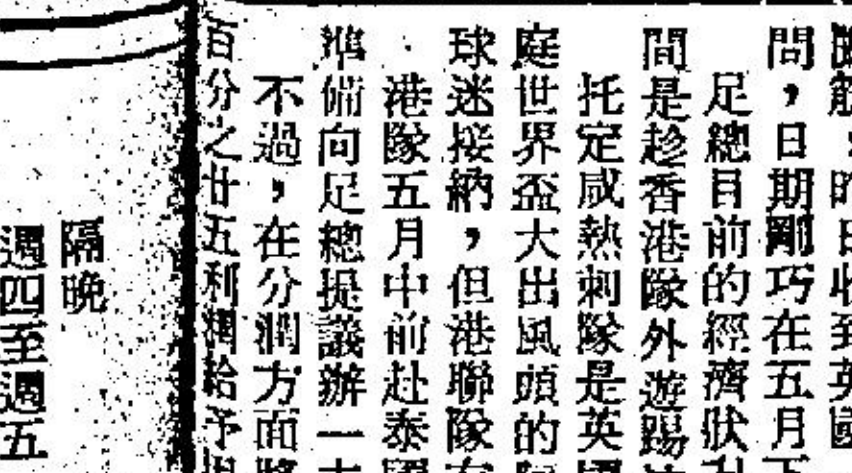 昨日收到英國
問，日期剛巧在五月下
足總目前的經濟狀
間是趁香港隊外遊踢
托定咸熱刺隊是英國
庭世界盃大出風頭的阿
球迷接納，但港聯隊在
港隊五月中前赴泰國
準備向足總提議辦一
不過，在分潤方面將
百分之廿五利潤給予
隔晚
週四至週五